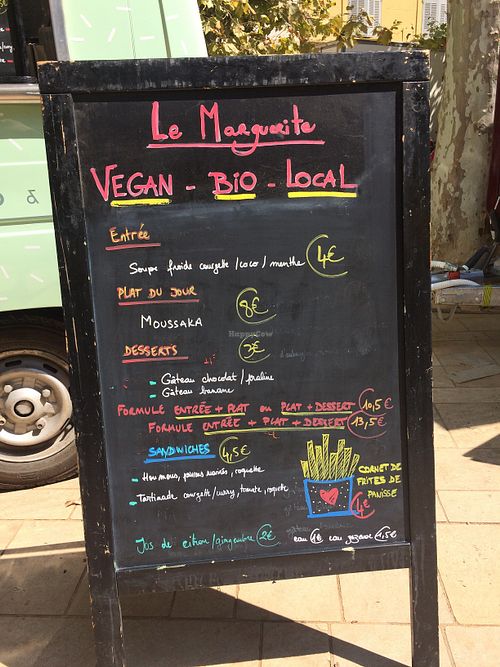 Le Marguerite
VEGAN - BIO - LOCAL
Entrée
Soupe froide courgette / coco / menthe 4€
PLAT DU JOUR
8€
MOUSSAKA
DESSERTS 3€
- Gâteau chocolat / praline
- Gâteau banane
FORMULE ENTRÉE + PLAT ou PLAT + DESSERT 10,5€
FORMULE ENTRÉE + PLAT + DESSERT 13,5€
SANDWICHES 4,5€
- Houmous, poivrons marinés, roquette
- Tartinade courgette / curry, tomate, roquette
CORNET DE
FRITES DE
PANISSE
4€
Jus de citron / gingembre 2€
eau 1€ eau gazeuse 1,5€
HappyCow